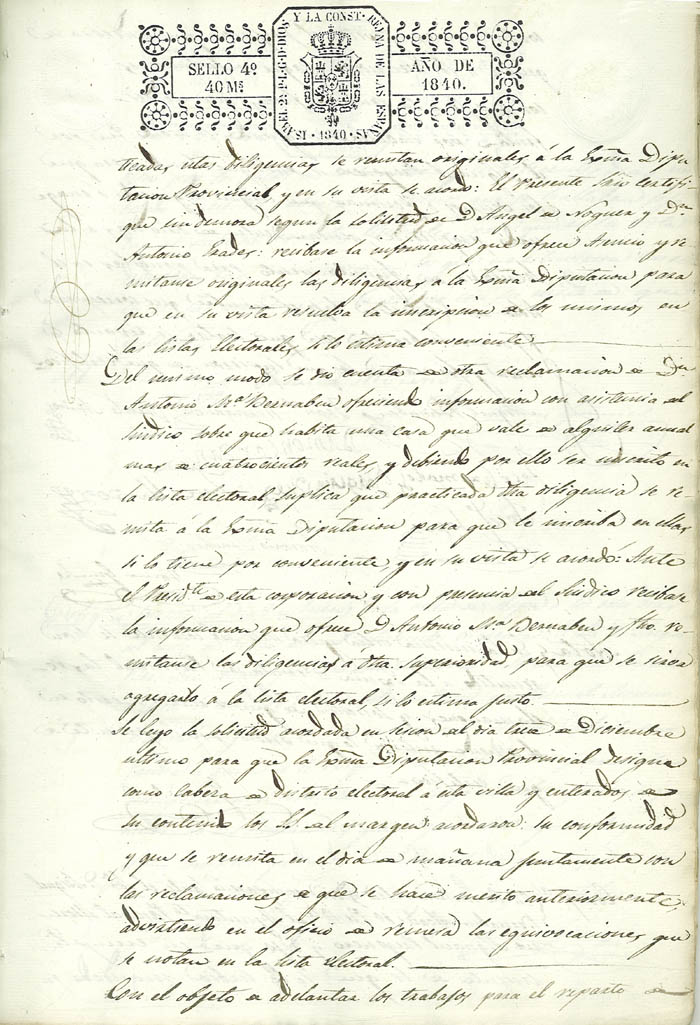 SELLO 4º
40 Ms
ISABEL 2ª P.L.G.D.DIOS Y LA CONST. REYNA DE LAS ESPAÑAS
1840
AÑO DE
1840.
ticadas estas diligencias se remitan originales á la Exmã Dipu
tacion Provincial, y en su vista se acordó: El presente Srio certifi
que sin demora segun la solicitud de D. Angel de Noguera y Dn
Antonio Prades: recibase la informacion que ofrece Asencio y re
mitanse originales las diligencias á la Exmã Diputacion para
que en su vista resuelva la inscripcion de los mismos en
las listas Electorales si lo estima conveniente
Del mismo modo se dio cuenta de otra reclamacion de Dn
Antonio Mª Bernabeu ofreciendo informacion con asistencia del
Sindico sobre que habita una casa que vale de alquiler anual
mas de cuatrocientos reales, y debiendo por ello ser inscrito en
la lista electoral, suplica que practicada dha diligencia se re
mita á la Exmã Diputacion para que le inscriba en ellas
si lo tiene por conveniente, y en su vista se acordó: Ante
el Presidte de esta corporacion y con presencia del Sindico recibase
la informacion que ofrece D Antonio Mª Bernabeu y fho. re
mitanse las diligencias á dha. Superioridad, para que se sirva
agregarlo á la lista electoral, si lo estima justo.
Se leyo la solicitud acordada en sesion del dia trece de Diciembre
ultimo para que la Exmã Diputacion Provincial designe
como Cabeza de distrito electoral á esta villa y enterados de
su contenido los SS. del margen acordaron: su conformidad
y que se remita en el dia de mañana juntamente con
las reclamaciones de que se hace merito anteriormente,
advirtiendo en el oficio de remesa las equivocaciones que
se notan en la lista Electoral.
Con el objeto de adelantar los trabajos para el reparto de